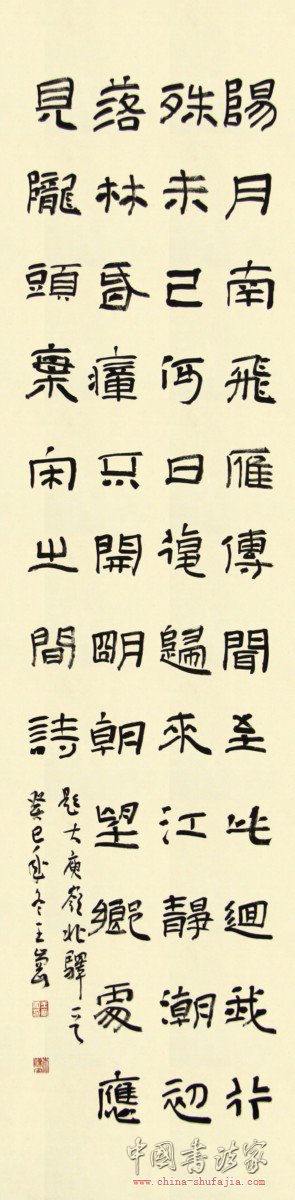 陽月南飛雁傳聞至此迴我行
殊未已何日復歸來江靜潮初
落林昏瘴不開明朝望鄉處應
見隴頭梅宋之間詩
題大庾嶺北驛一首
癸巳冬王
中國書法家
www.china-shufajia.com